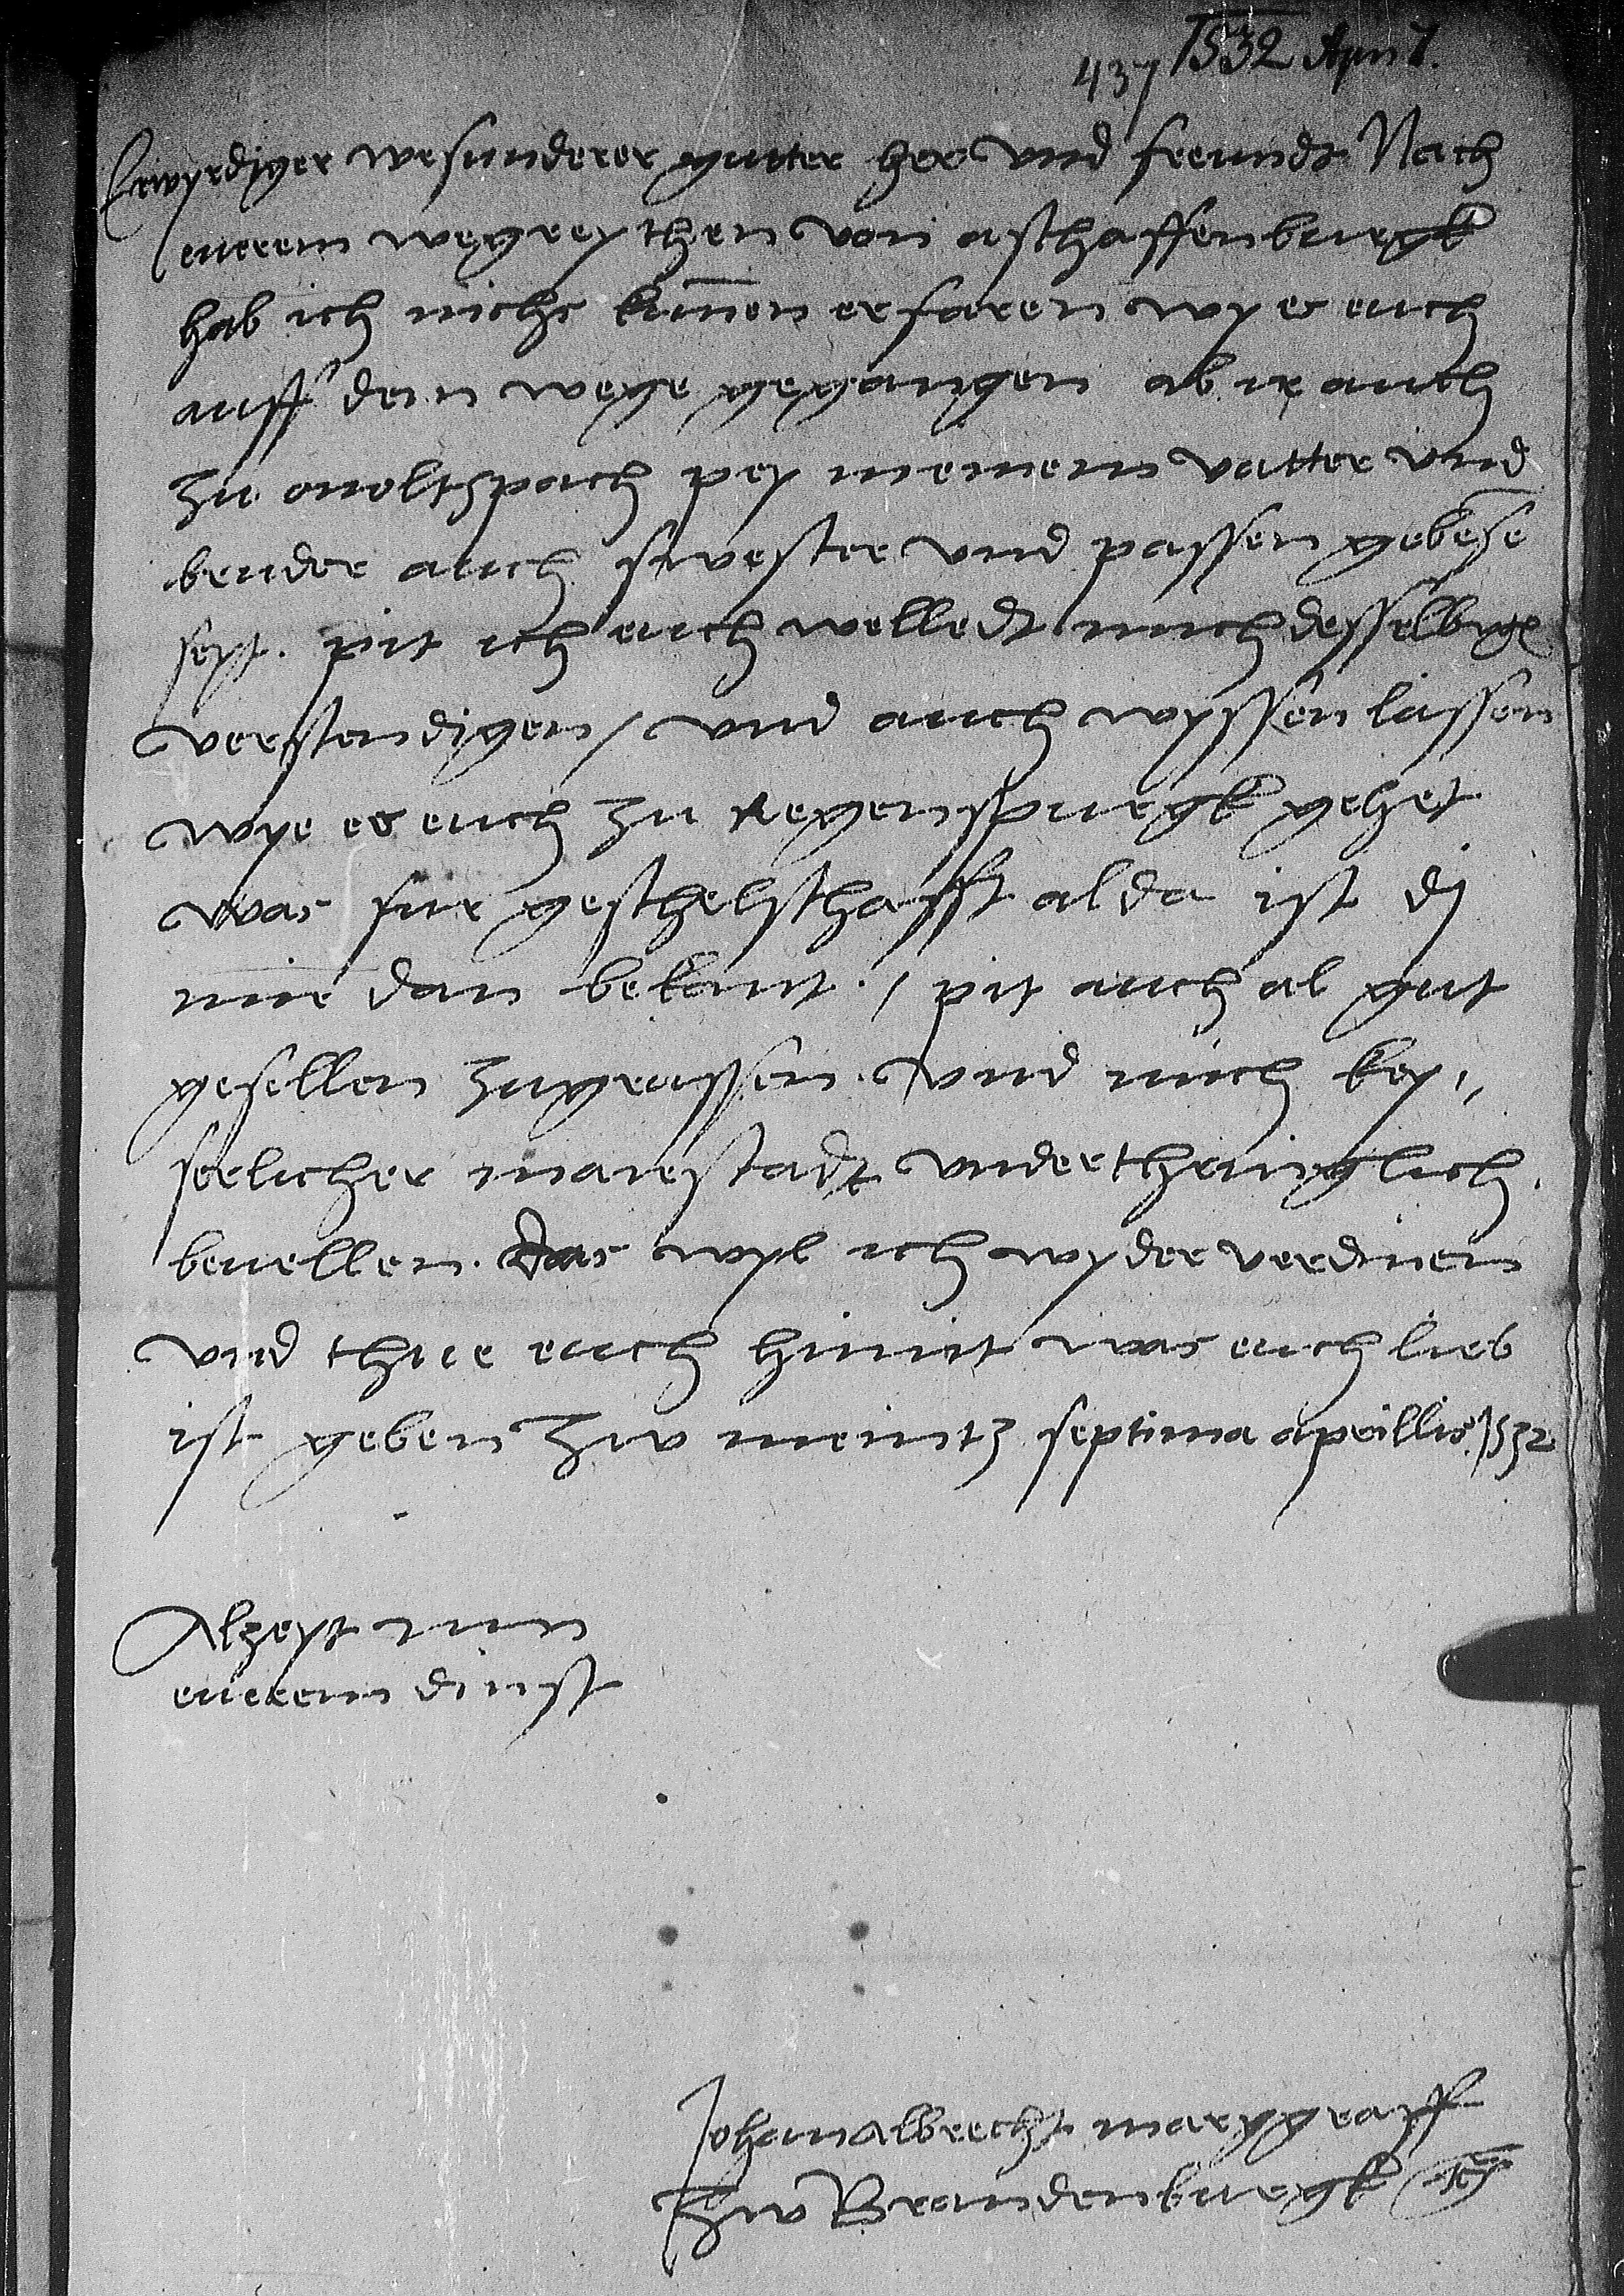 437 1532 April 7.
Erwyrdiger wesunderer gutter her vnd freundt Nach
eurem wegreythen von aschaffenburgk
hab ich nichs kunnen erfaren wy es euch
auff dem wege gegangen ab ir auch
zu onoltzpach pey meinem vatter vnd
bruder auch swester vnd passen gebese
seyt. pit ich euch welledt mich desselbige
verstendigen / vnd auch wyssen lassen
wye es euch zu regenspurgk gehet
was fur geschelschafft alda ist di
mir dan bekant. / pit auch al gut
gesellen zugrussen. vnd mich key,,
serlicher maiestadt vnderthenyglich
beuellen. Das wyl ich wyder verdinen
vnd thue euch himit was euch lieb
ist geben zw meintz septima aprillis 1532
Alzeyt inn
eurem dinst
Johanalbrecht marggraff
zw Brandenburgk